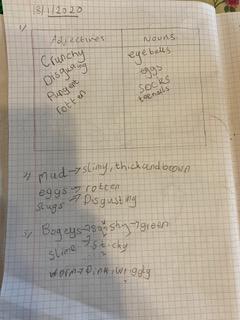 13/1/2020
1)
Adjectives Nouns
Crunchy eyeballs
Disgusting eggs
Purple socks
rotten
2) Mud → slimy, thick and brown
eggs → rotten
Slugs → Disgusting
3) Bogeys → green
Slime → Sticky
worm → Pink, wriggly